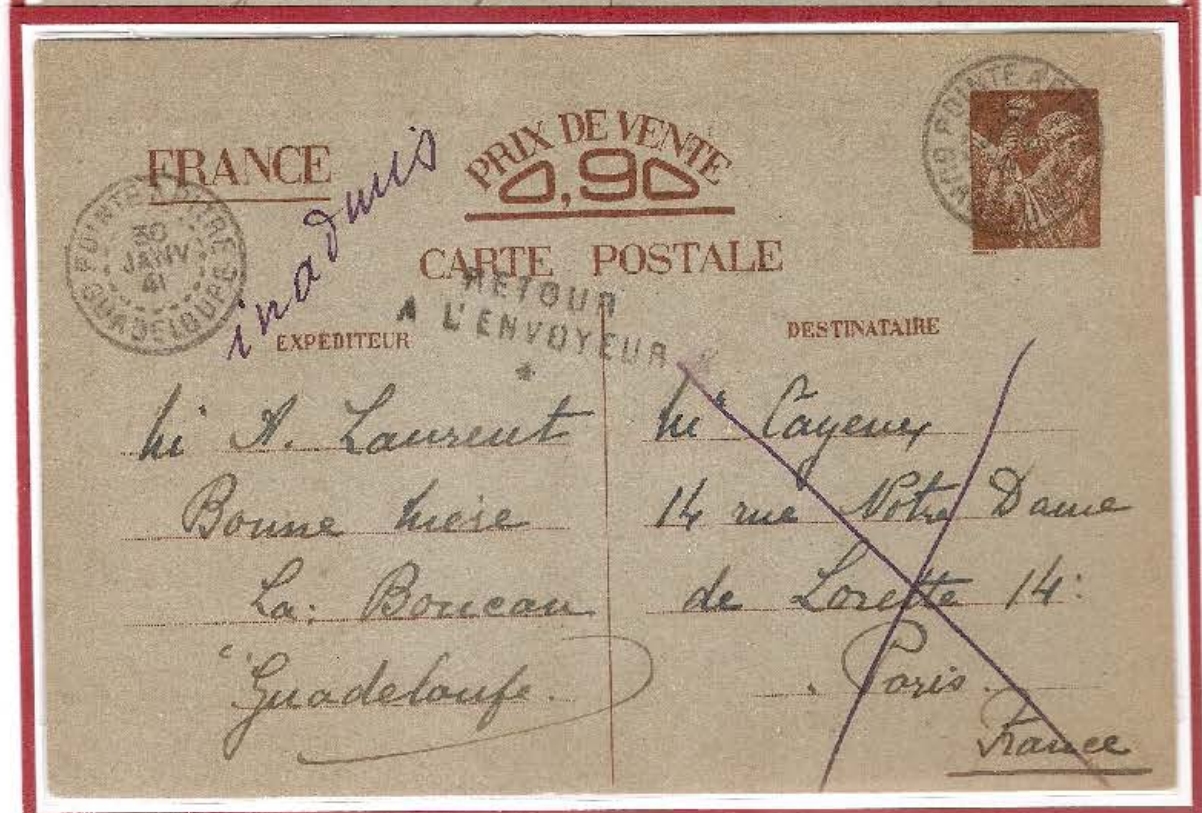 FRANCE
PRIX DE VENTE
0,90
CARTE POSTALE
POINTE A PITRE
30
JANV
41
GUADELOUPE
inadmis
RETOUR
A L'ENVOYEUR
*
EXPÉDITEUR
A. Laurent
Bonne Mère
La: Boucan
Guadeloupe.
DESTINATAIRE
Cayeux
14 rue Notre Dame
de Lorette 14:
Paris.
France
POINTE A